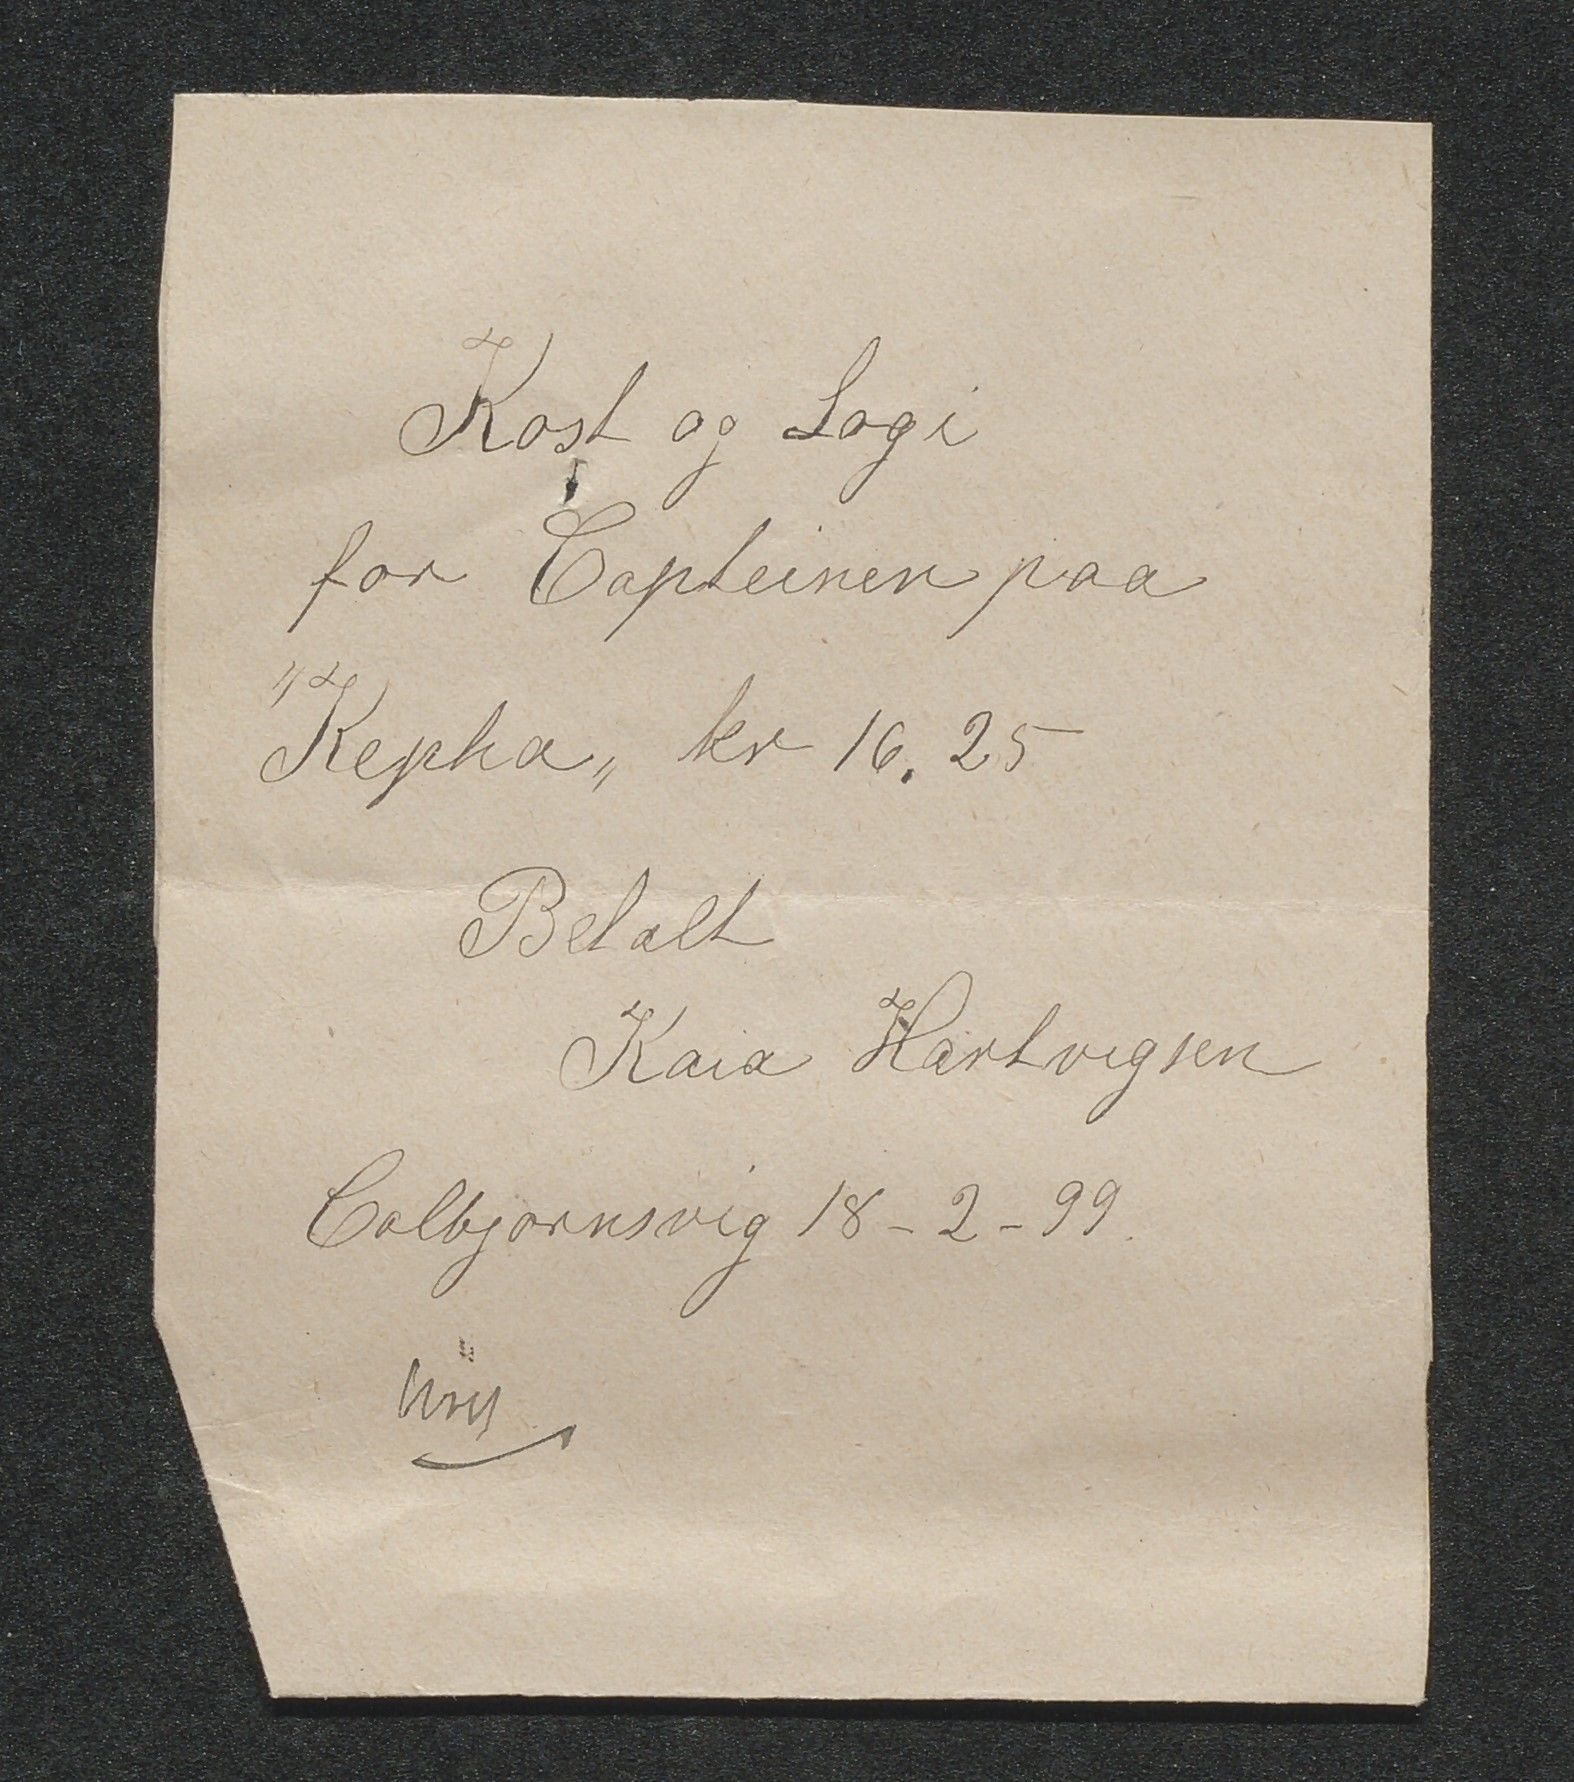 Kost og Logi
for Capteinen paa
"Kepha„ kr 16.25
Betalt
Kaia Hartvigsen
Colbjornsvig 18-2-99.